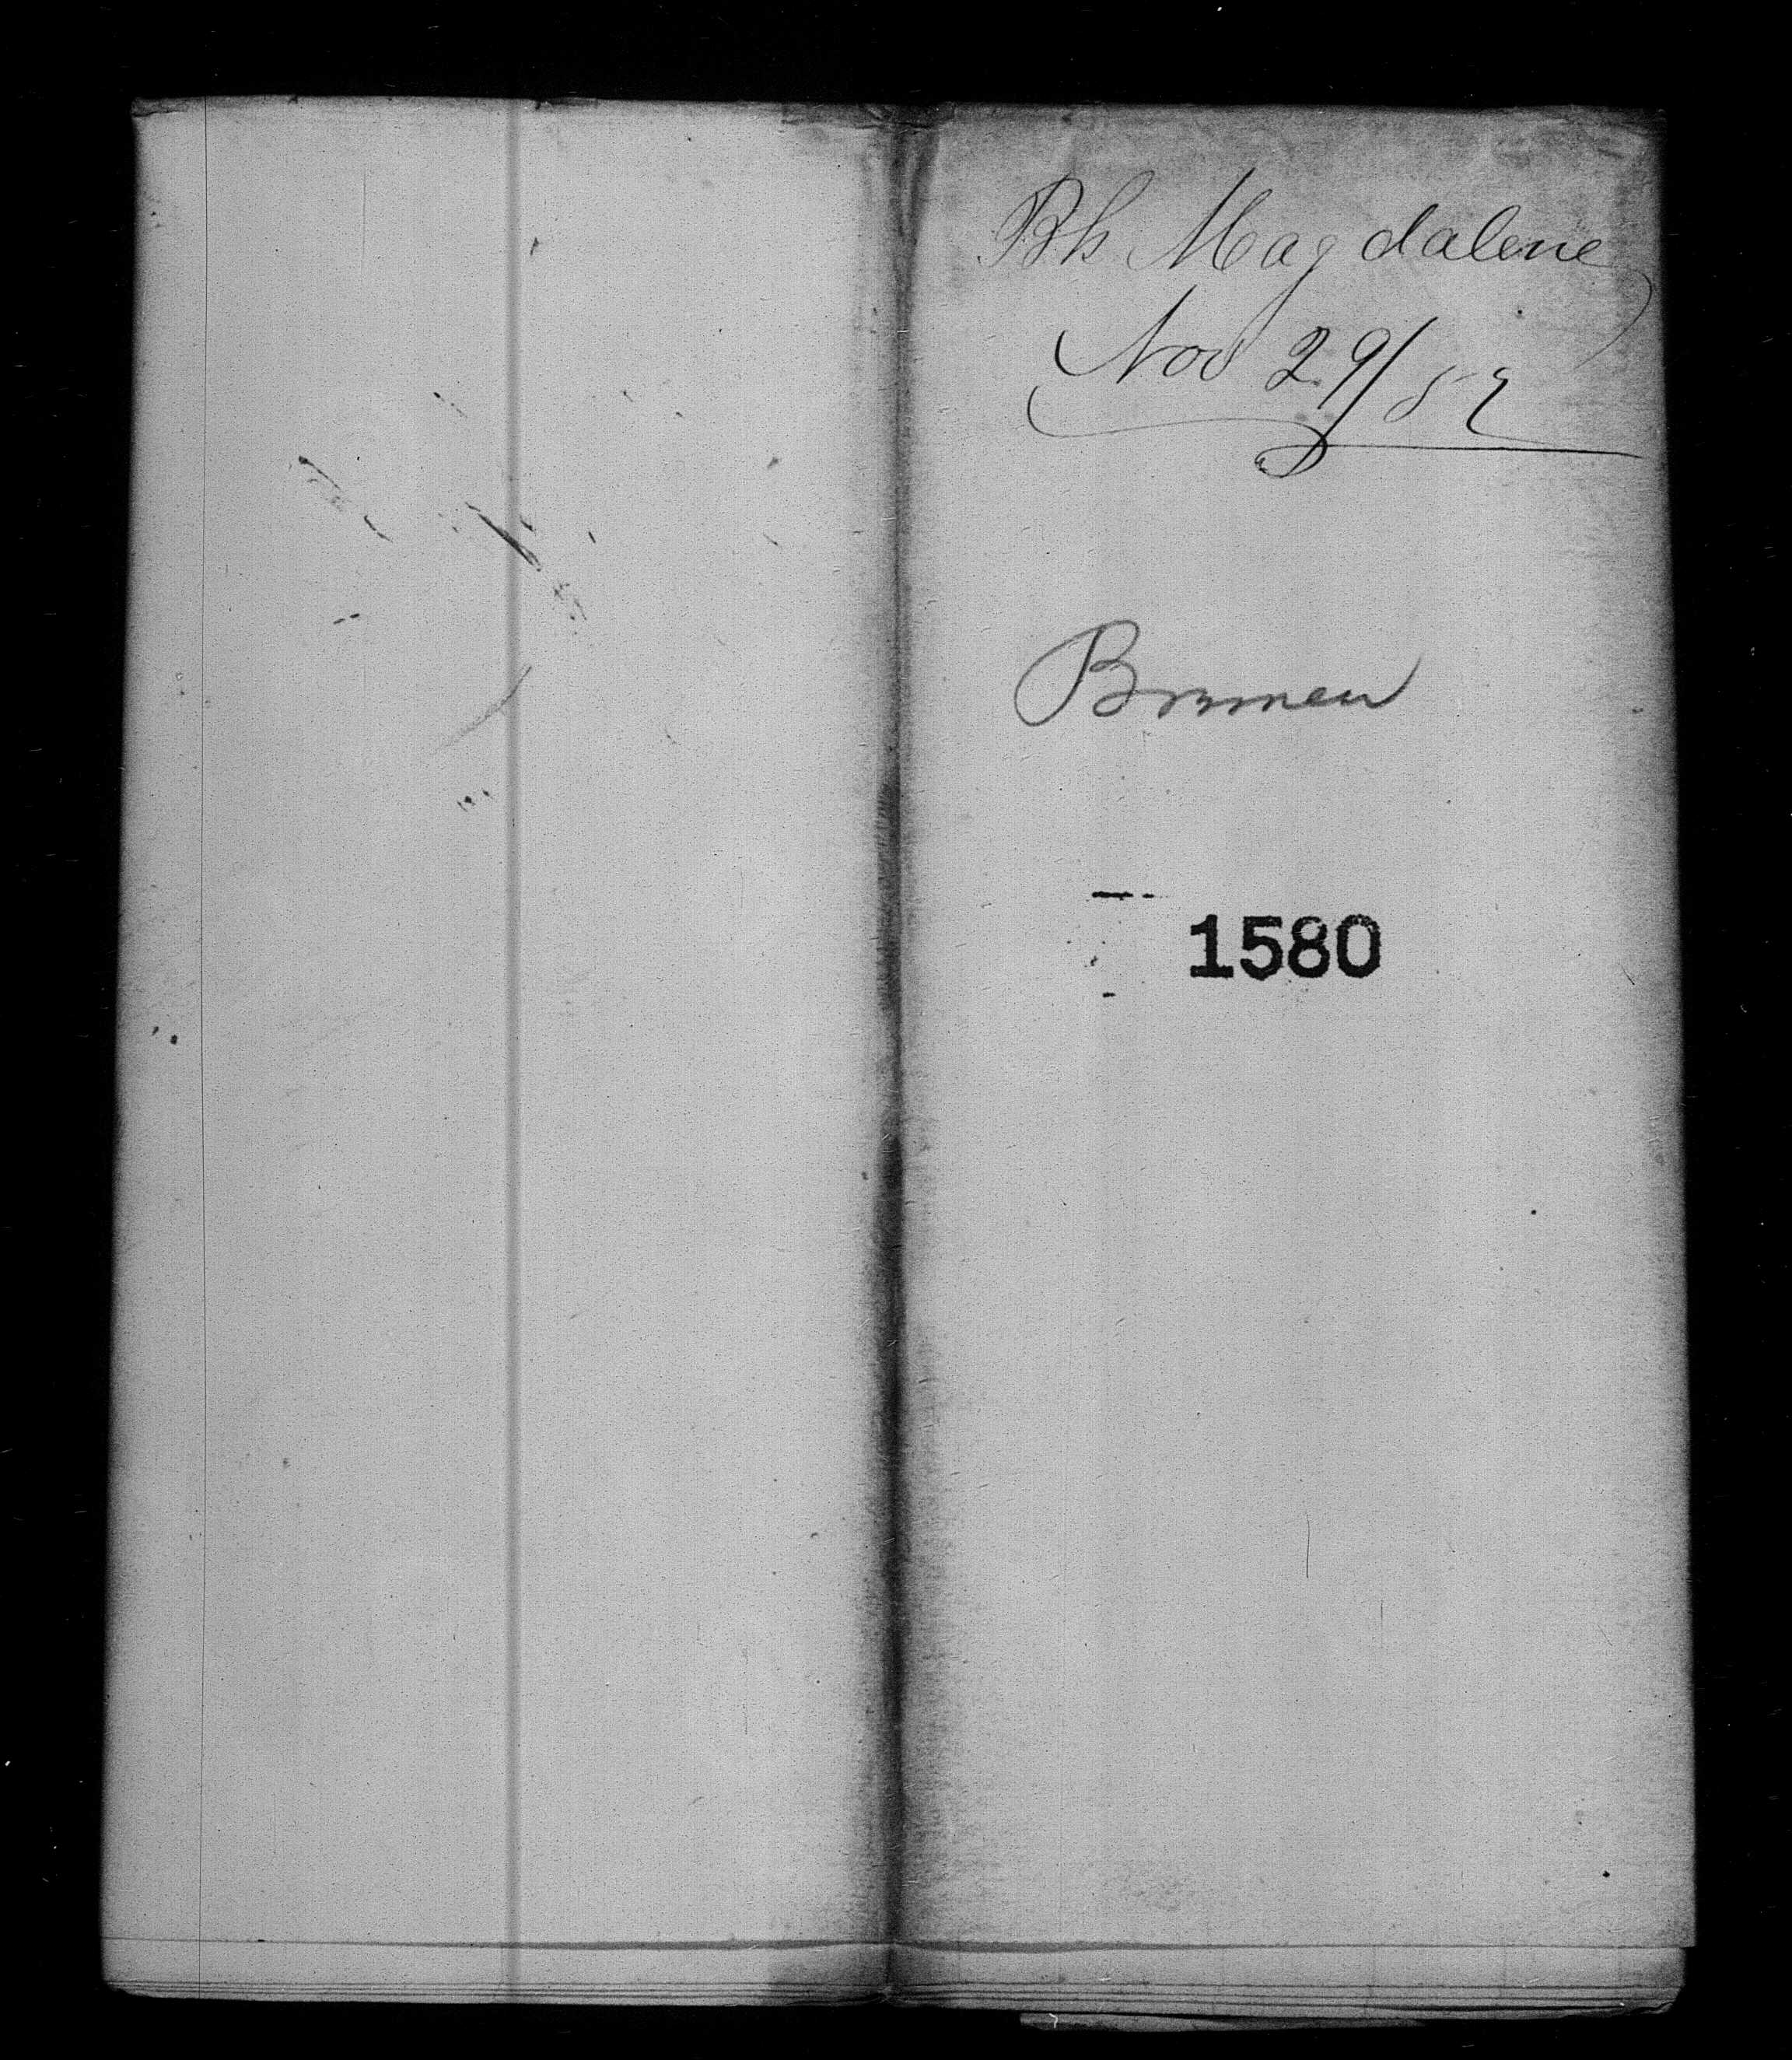 Bk Magdalene
Nov 29/52
Bremen
1580